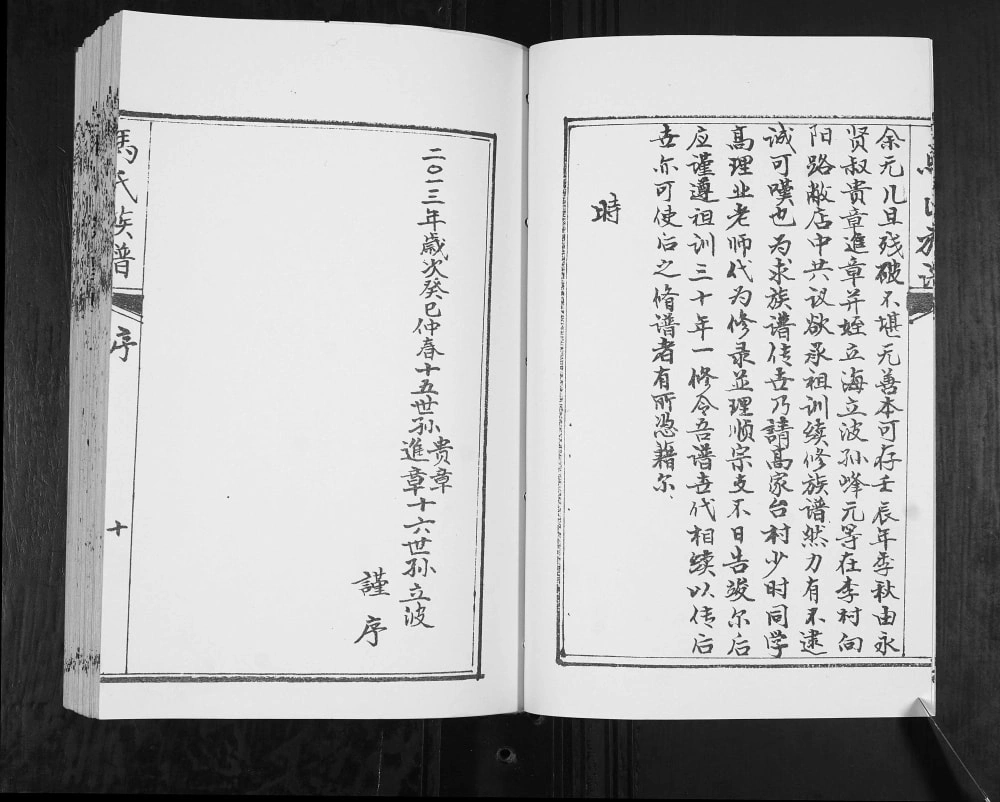 余无几且残破不堪无善本可存壬辰年季秋由永
贤叔贵章進章并姪立海立波孙峰元等在李村向
阳路敝店中共议欲承祖训续修族谱然力有不逮
诚可嘆也为求族谱传世乃請高家台村少时同学
高理业老师代为修录並理顺宗支不日告竣尔后
应谨遵祖训三十年一修令吾谱世代相续以传后
世亦可使后之脩谱者有所憑藉尔
時
二〇一三年歲次癸巳仲春十五世孙贵章
進章十六世孙立波
謹序
馬氏族譜
序
十